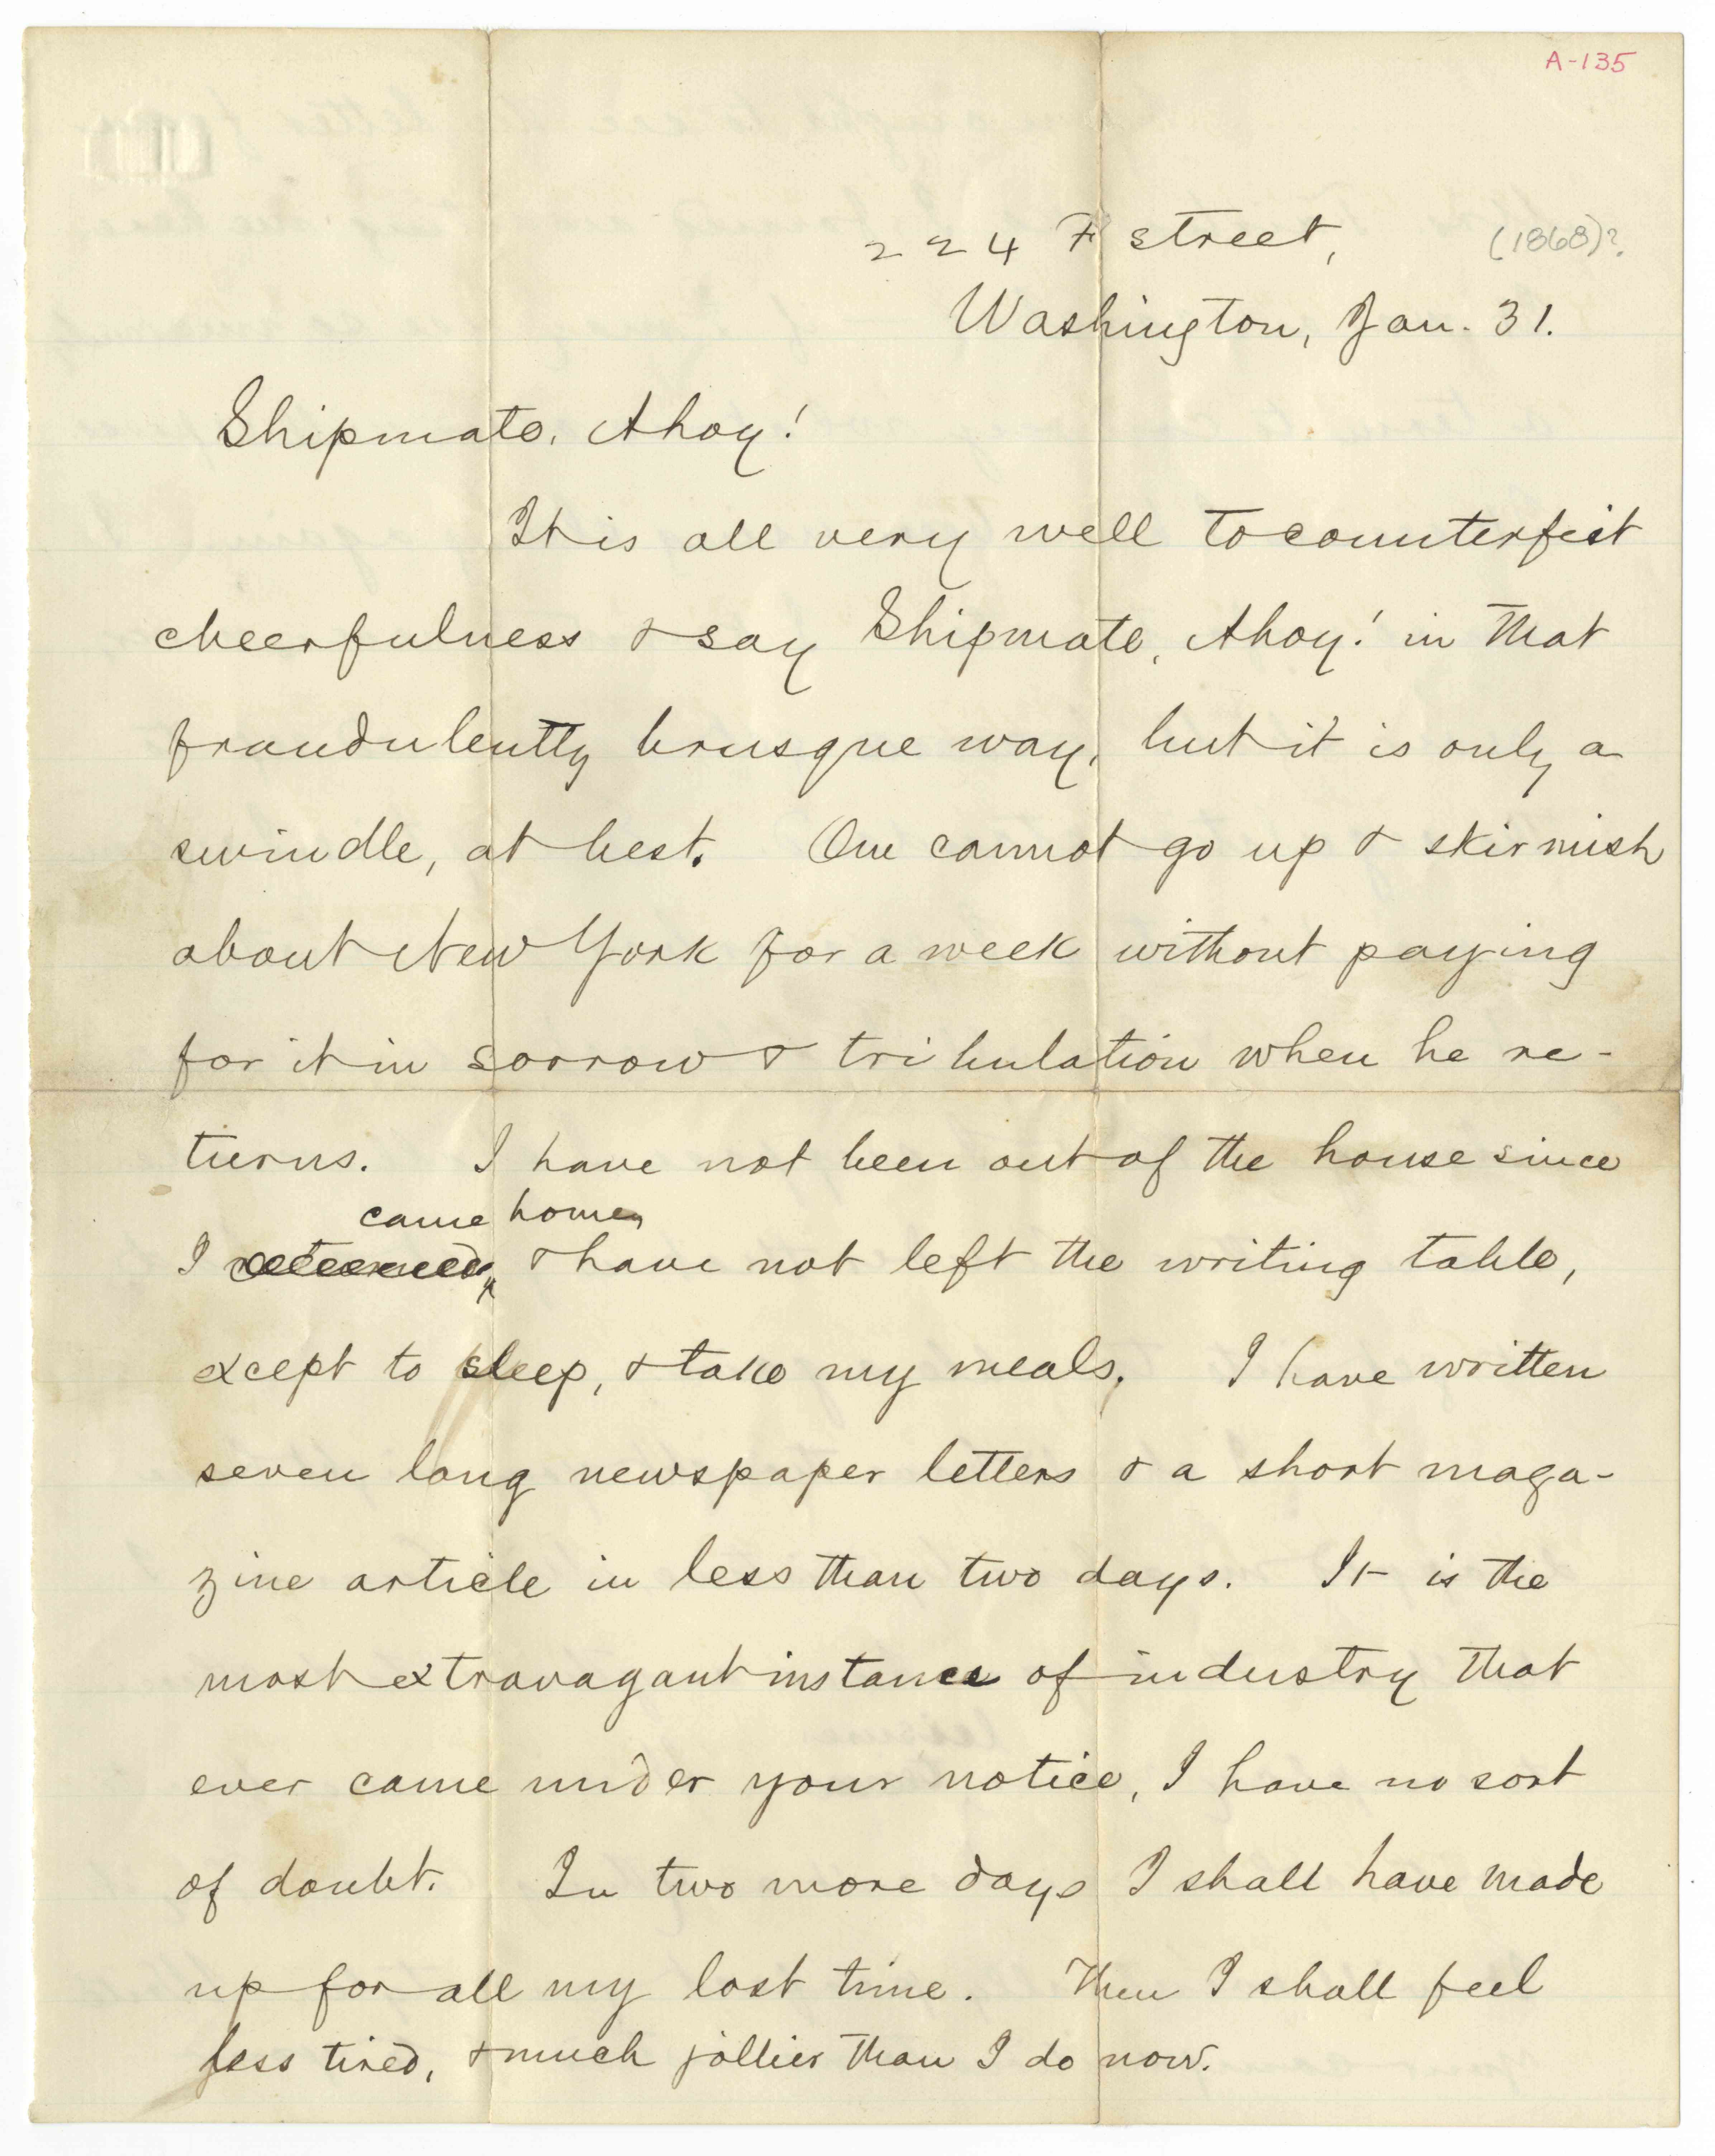 A-135
224 F street, (1868)?
Washington, Jan. 31.
Shipmate, Ahoy!
It is all very well to counterfeit
cheerfulness & say Shipmate, Ahoy! in that
fraudulently brusque way, but it is only a
swindle, at best. One cannot go up & skirmish
about New York for a week without paying
for it in sorrow & tribulation when he re-
turns. I have not been out of the house since
came home,
I returned, & have not left the writing table,
except to sleep, & take my meals. I have written
seven long newspaper letters & a short maga-
zine article in less than two days. It is the
most extravagant instance of industry that
ever came under your notice, I have no sort
of doubt. In two more days I shall have made
up for all my lost time. Then I shall feel
less tired, & much jollier than I do now.